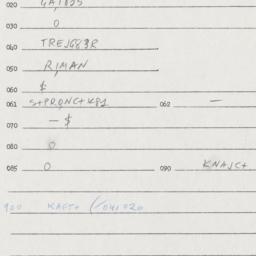 020 GA1825
030 0
040 TREJG83R
050 RIMAN
060 $
061 S+PRONC+K81 062 —
070 — $
080 0
085 0 090 KNAJC+
920 KAET+ (/041020